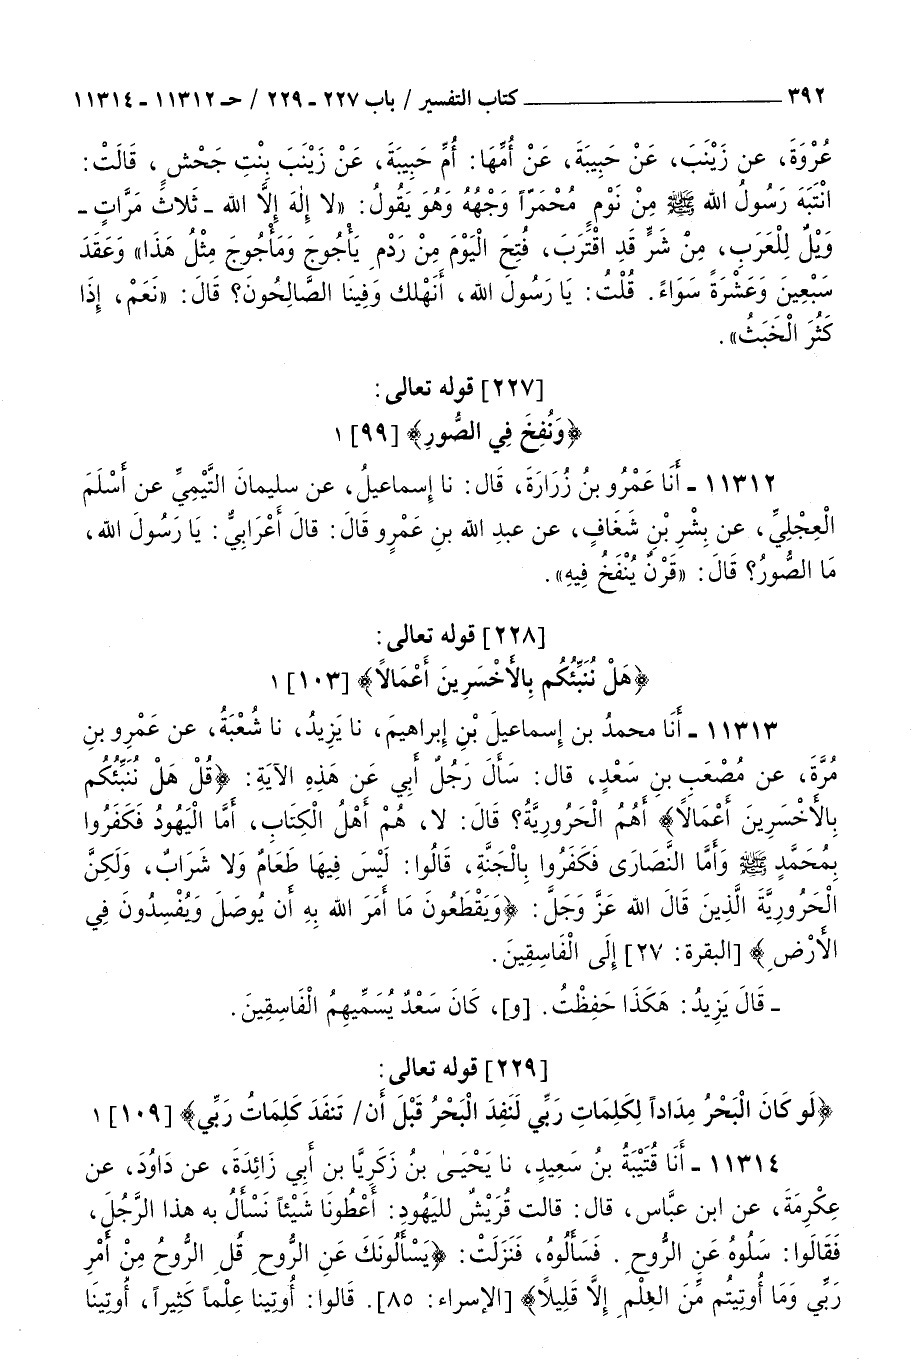 ٣٩٢ ــــــــــــــــــــــــ كتاب التفسير / باب ٢٢٧ ـ ٢٢٩ / حـ ١١٣١٢ ـ ١١٣١٤
عُرْوَةَ، عن زَيْنَبَ، عَنْ حَبِيبَةَ، عَنْ أُمِّهَا: أُمِّ حَبِيبَةَ، عَنْ زَيْنَبَ بِنْتِ جَحْشٍ، قَالَتْ:
انْتَبَهَ رَسُولُ الله ﷺ مِنْ نَوْمٍ مُحْمَرّاً وَجْهُهُ وَهُوَ يَقُولُ: «لا إِلٰهَ إِلَّا الله ـ ثَلاثَ مَرَّاتٍ ـ
وَيْلٌ لِلْعَرَبِ، مِنْ شَرٍّ قَدِ اقْتَرَبَ، فُتِحَ الْيَوْمَ مِنْ رَدْمِ يَأْجُوجَ وَمَأْجُوجَ مِثْلُ هَذَا» وَعَقَدَ
سَبْعِينَ وَعَشْرَةً سَوَاءً. قُلْتُ: يَا رَسُولَ الله، أَنَهْلك وَفِينَا الصَّالِحُونَ؟ قَالَ: «نَعَمْ، إِذَا
كَثُرَ الْخَبَثُ».
[٢٢٧] قوله تعالى:
﴿وَنُفِخَ فِي الصُّورِ﴾ [٩٩] ١
١١٣١٢ ـ أَنَا عَمْرُو بنُ زُرَارَةَ، قَال: نا إِسماعيلُ، عن سليمانَ التَّيْمِيِّ عن أَسْلَمَ
الْعِجْلِيِّ، عن بِشْرِ بْنِ شَغَافٍ، عن عبدِ الله بنِ عَمْرٍو قَالَ: قالَ أَعْرَابِيٌّ: يَا رَسُولَ الله،
مَا الصُّورُ؟ قَالَ: «قَرْنٌ يُنْفَخُ فِيهِ».
[٢٢٨] قوله تعالى:
﴿هَلْ نُنَبِّئُكُم بِالأَخْسَرِينَ أَعْمَالاً﴾ [١٠٣] ١
١١٣١٣ ـ أَنَا محمدُ بن إسماعيلَ بْنِ إبراهيمَ، نا يَزِيدُ، نا شُعْبَةُ، عن عَمْرِو بنِ
مُرَّةَ، عن مُصْعَبِ بنِ سَعْدٍ، قال: سَأَلَ رَجُلٌ أَبِي عَن هَذِهِ الآيَةِ: ﴿قُلْ هَلْ نُنَبِّئُكُم
بِالأَخْسَرِينَ أَعْمَالاً﴾ أَهُمُ الْحَرُورِيَّةُ؟ قَالَ: لا، هُمْ أَهْلُ الْكِتَابِ، أَمَّا الْيَهُودُ فَكَفَرُوا
بِمُحَمَّدٍ ﷺ وَأَمَّا النَّصَارَى فَكَفَرُوا بِالْجَنَّةِ، قَالُوا: لَيْسَ فِيهَا طَعَامٌ وَلا شَرَابٌ، وَلَكِنَّ
الْحَرُورِيَّةَ الَّذِينَ قَالَ الله عَزَّ وَجَلَّ: ﴿وَيَقْطَعُونَ مَا أَمَرَ الله بِهِ أَن يُوصَلَ وَيُفْسِدُونَ فِي
الأَرْضِ﴾ [البقرة: ٢٧] إِلَى الْفَاسِقِينَ.
ـ قَالَ يَزِيدُ: هَكَذَا حَفِظْتُ. [و]، كَانَ سَعْدٌ يُسَمِّيهِمُ الْفَاسِقِينَ.
[٢٢٩] قوله تعالى:
﴿لَو كَانَ الْبَحْرُ مِدَاداً لِكَلِمَاتِ رَبِّي لَنَفِدَ الْبَحْرُ قَبْلَ أَن/ تَنفَدَ كَلِمَاتُ رَبِّي﴾ [١٠٩] ١
١١٣١٤ ـ أَنَا قُتَيْبَةُ بنُ سَعِيدٍ، نا يَحْيَىٰ بنُ زَكَرِيَّا بن أَبِي زَائِدَةَ، عن دَاوُدَ، عن
عِكْرِمَةَ، عن ابن عبَّاس، قال: قالت قُرَيْشٌ لليَهُودِ: أَعْطُونَا شَيْئاً نَسْأَلُ به هذا الرَّجُلَ،
فَقَالُوا: سَلُوهُ عَنِ الرُّوحِ. فَسَأَلُوهُ، فَنَزَلَتْ: ﴿يَسْأَلُونَكَ عَنِ الرُّوحِ قُلِ الرُّوحُ مِنْ أَمْرِ
رَبِّي وَمَا أُوتِيتُم مِّنَ الْعِلْمِ إِلَّا قَلِيلاً﴾ [الإسراء: ٨٥]. قالوا: أُوتِينا عِلْماً كَثِيراً، أُوتِينَا